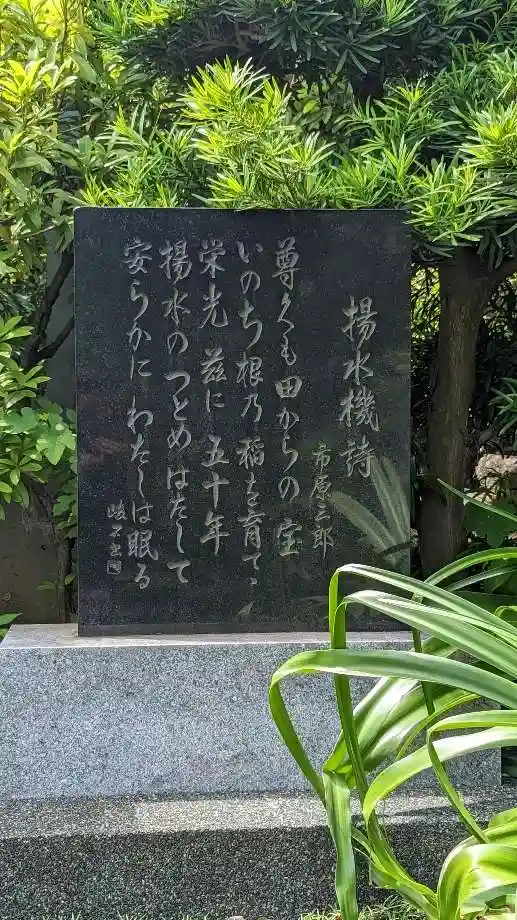 揚水機詩
市原三郎
尊くも田からの宝
いのち根乃稲を育て
栄光 茲に五十年
揚水のつとめはたして
安らかに わたしは眠る